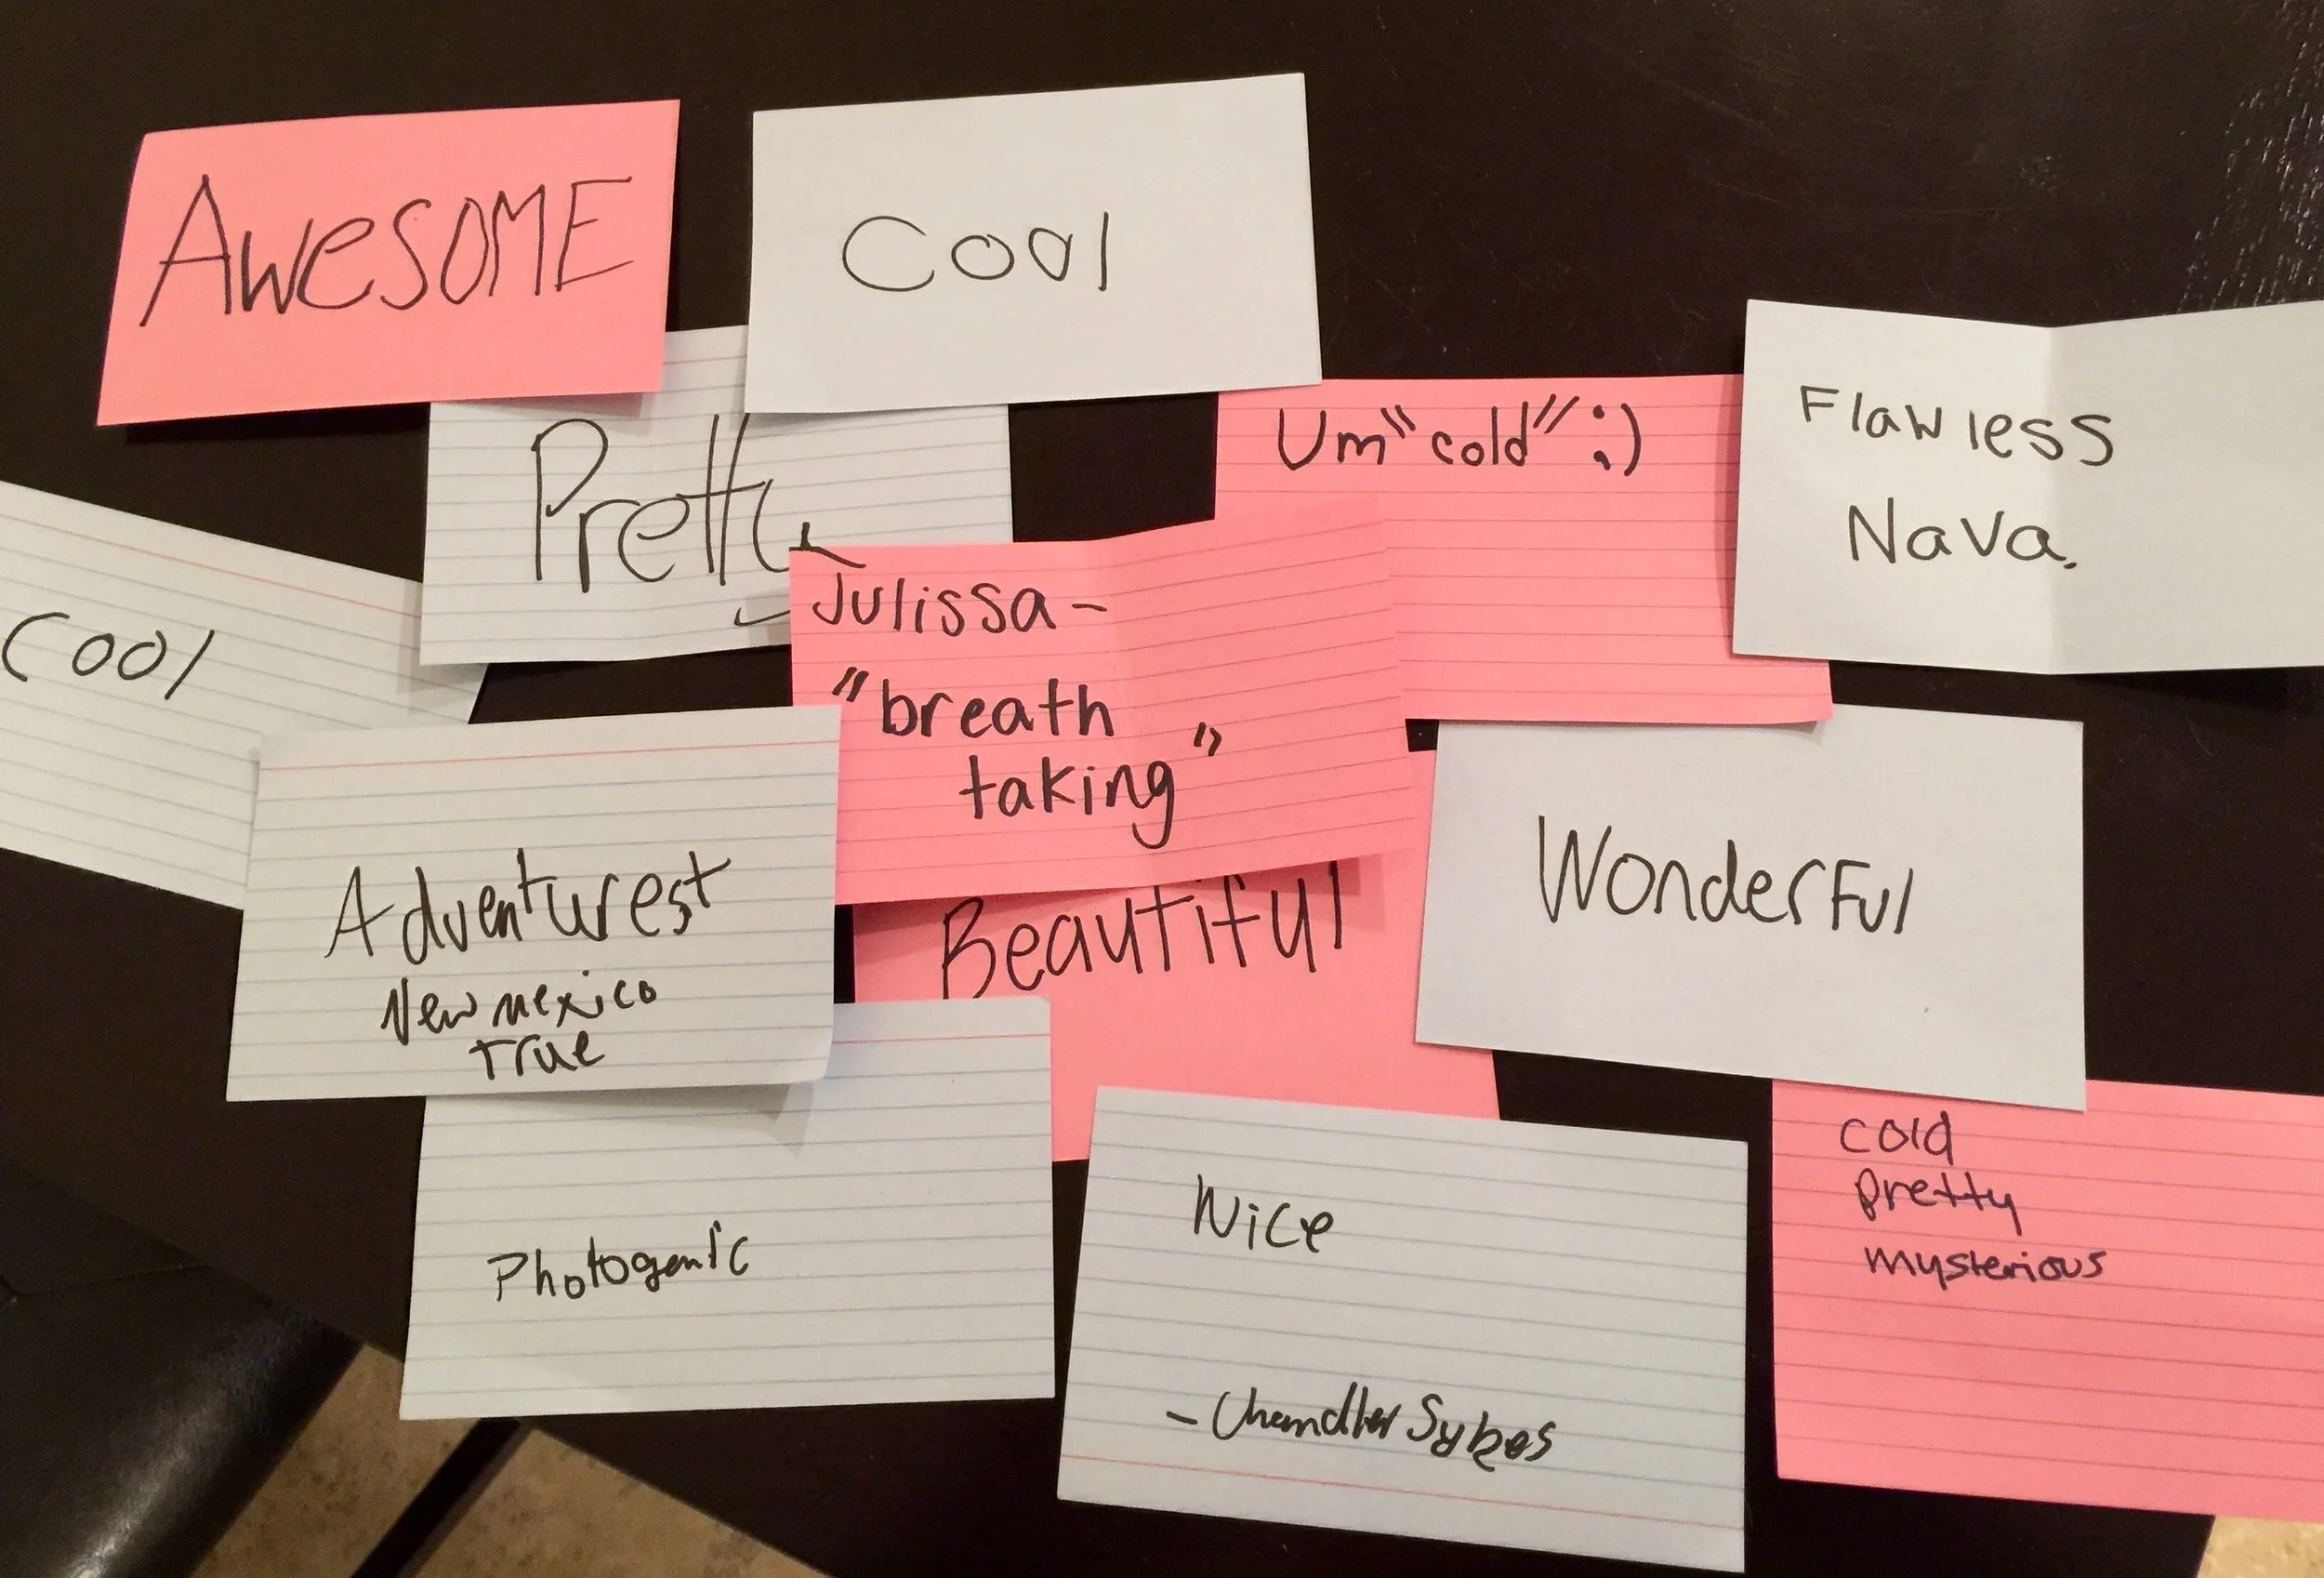 AWeSOME
Cool
Pretty
Um "cold" :)
Flawless
Nava.
Cool
Julissa -
"breath
taking"
Adventurest
New mexico
true
Beautiful
Wonderful
Photogenic
Nice
- Chandler Sykes
cold
pretty
mysterious